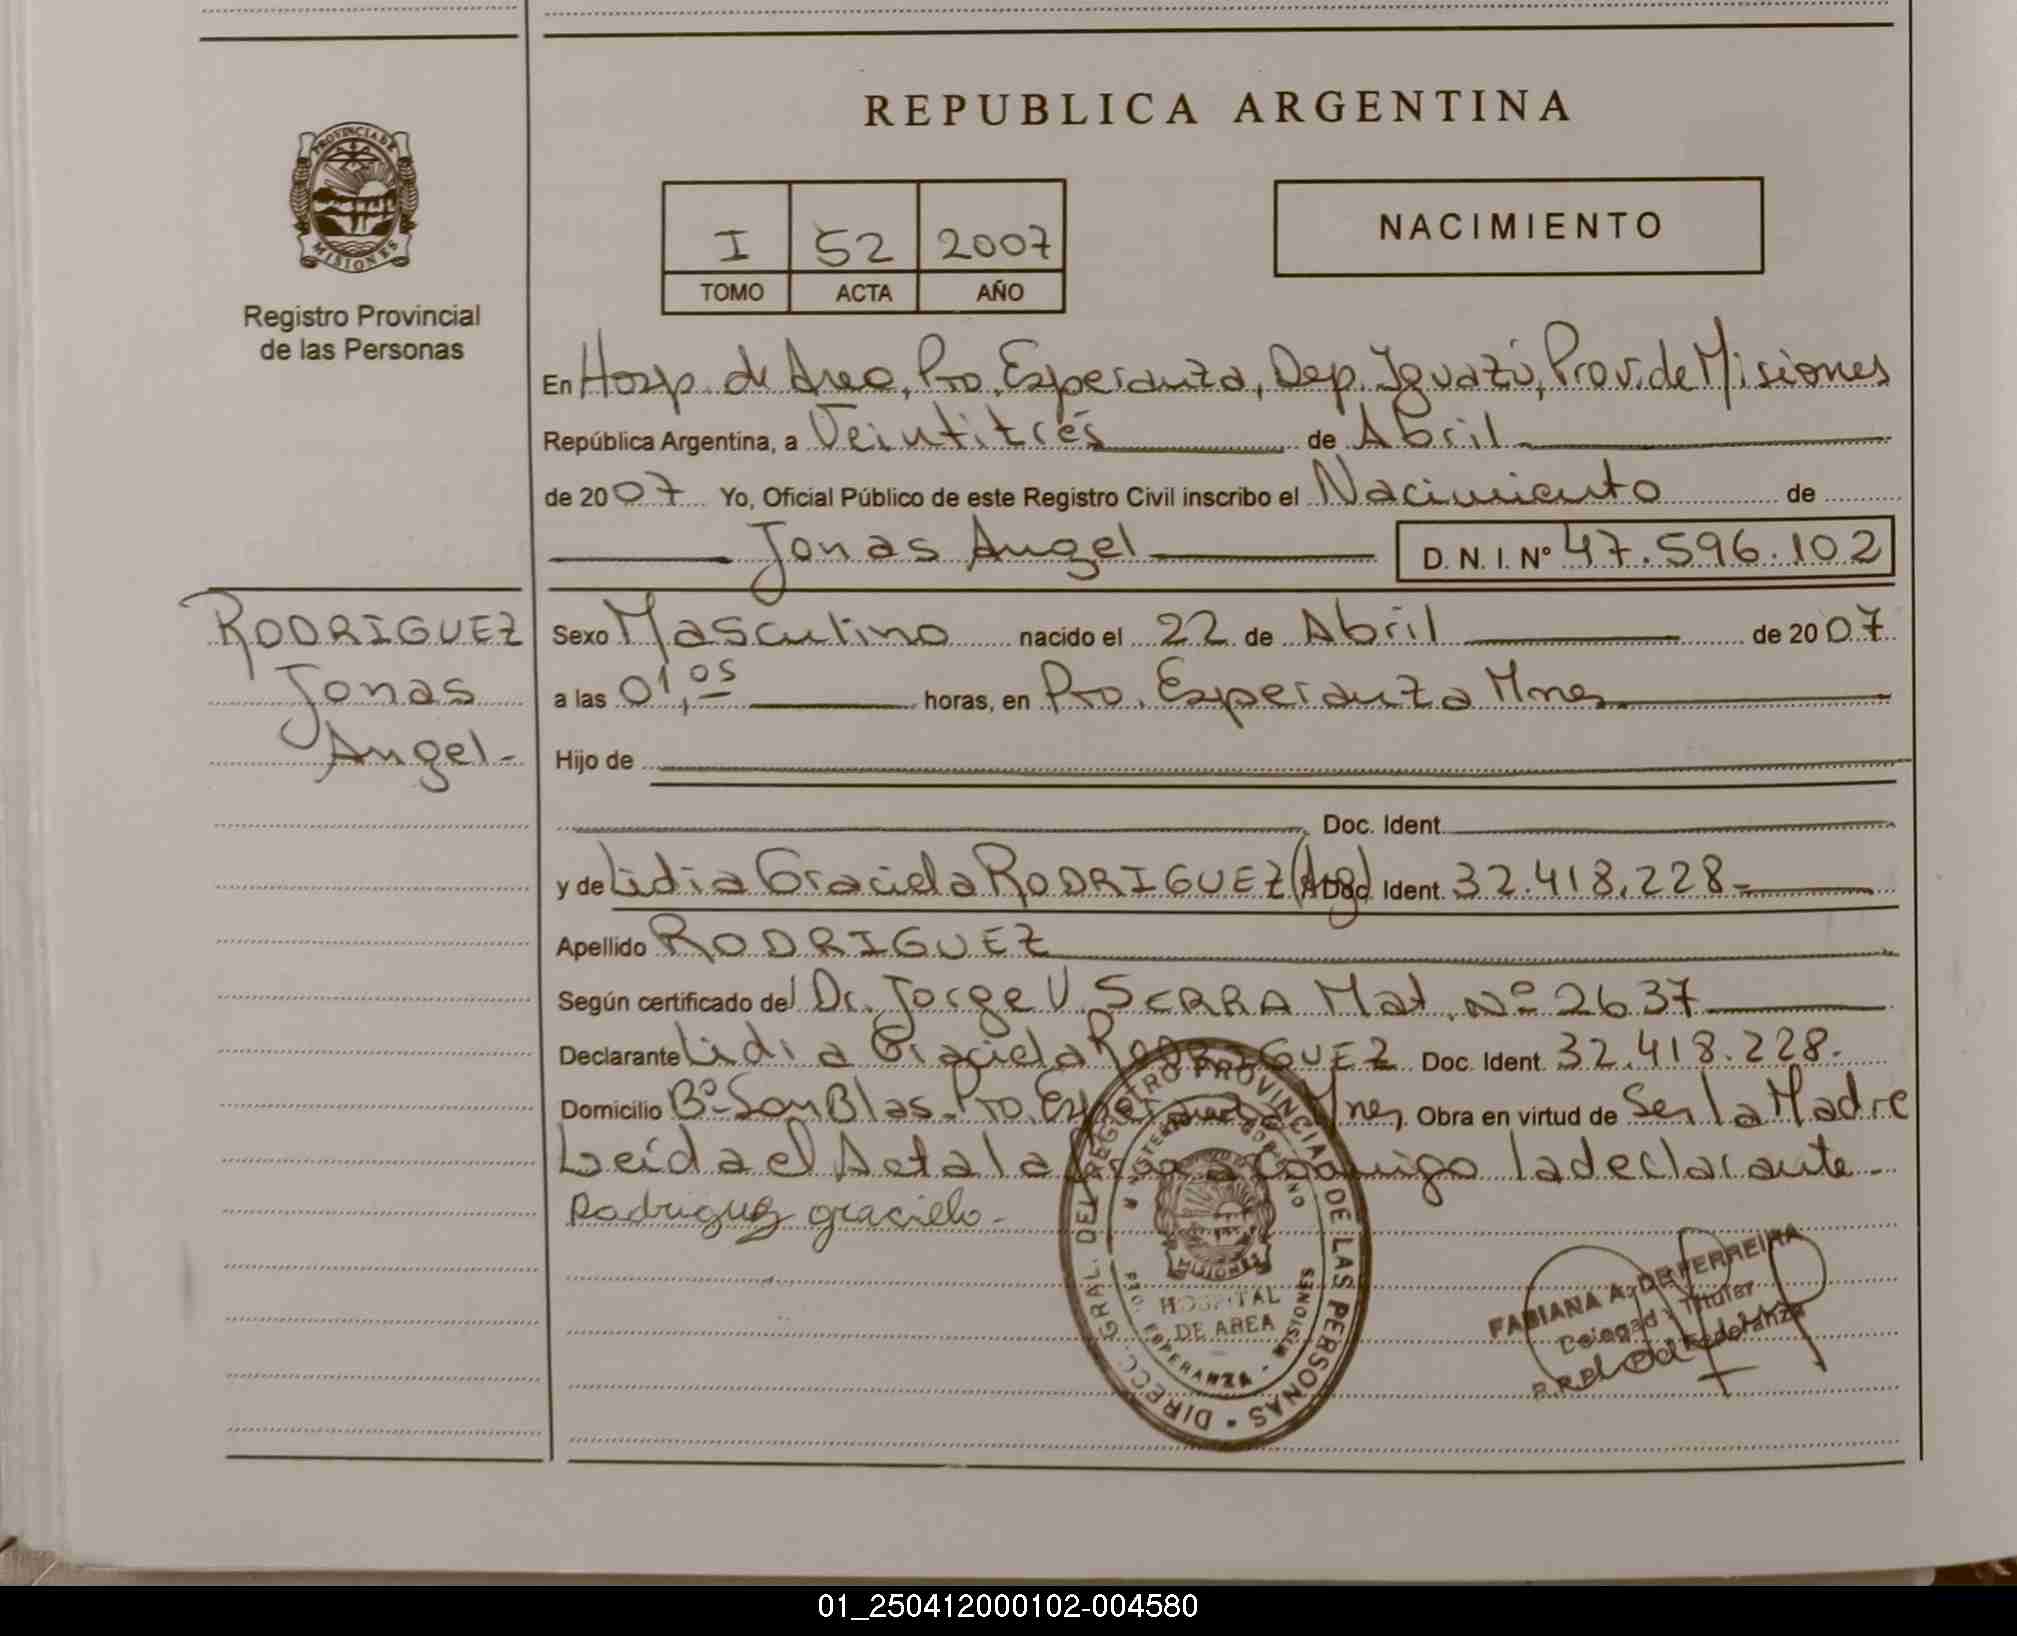 REPUBLICA ARGENTINA
PROVINCIA DE
MISIONES
Registro Provincial
de las Personas
I 52 2007
TOMO ACTA AÑO
NACIMIENTO
En Hosp. de Area, Pto. Esperanza, Dep. Iguazú, Prov. de Misiones
República Argentina, a Veintitrés de Abril
de 2007 Yo, Oficial Público de este Registro Civil inscribo el Nacimiento de
Jonas Angel D. N. I. Nº 47.596.102
RODRIGUEZ
Jonas
Angel-
Sexo Masculino nacido el 22 de Abril de 2007
a las 01,05 horas, en Pto. Esperanza Mnes
Hijo de
Doc. Ident.
y de Lidia Graciela RODRIGUEZ (Arg) Doc. Ident. 32.418.228-
Apellido RODRIGUEZ
Según certificado del Dr. Jorge V. SERRA Mat. Nº 2637
Declarante Lidia Graciela RODRIGUEZ Doc. Ident. 32.418.228-
Domicilio Bº San Blas-Pto. Esperanza Mnes. Obra en virtud de Ser la Madre
Leída el Acta la firma conmigo la declarante-
Rodriguez graciela-
DIRECC. GRAL. DEL REGISTRO PROVINCIAL DE LAS PERSONAS
MINISTERIO DE GOBIERNO
MISIONES
HOSPITAL
DE AREA
PTO. ESPERANZA - MISIONES
FABIANA A. DE FERREIRA
Delegada Titular
01_250412000102-004580